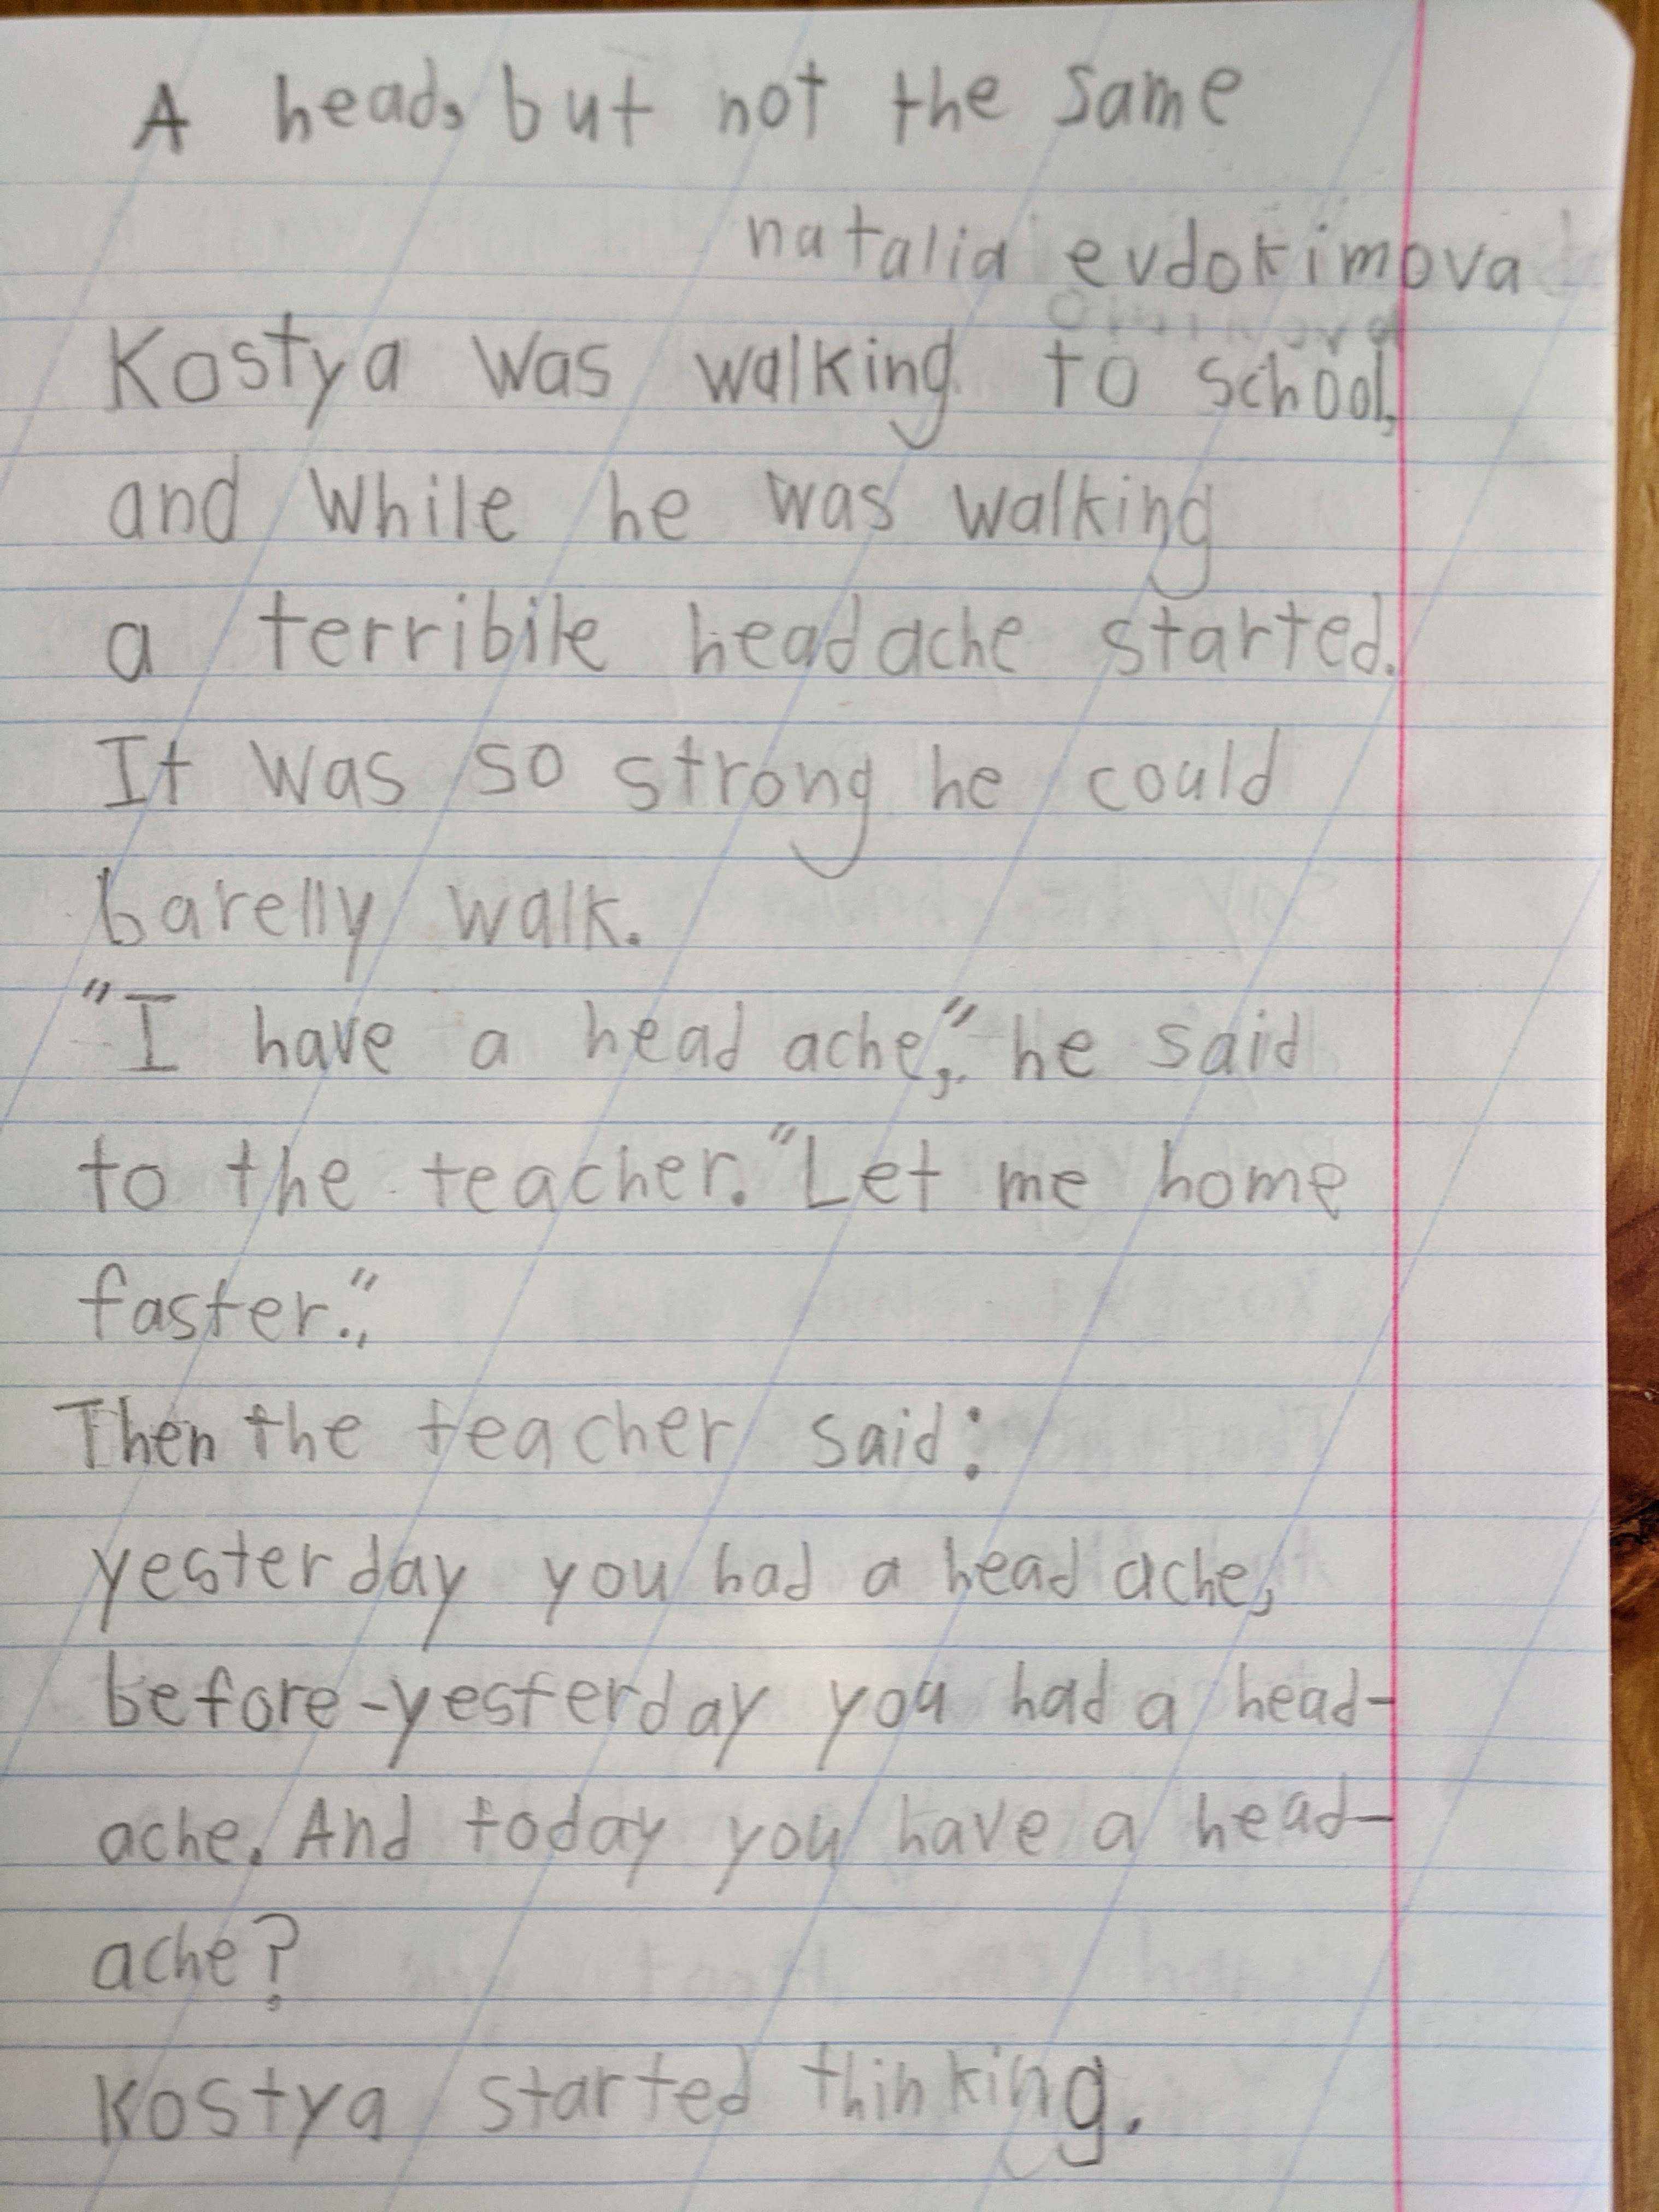 A head, but not the same
natalia evdokimova
Kostya was walking to school,
and while he was walking
a terribile headache started.
It was so strong he could
barelly walk.
"I have a head ache," he said
to the teacher. "Let me home
faster."
Then the teacher said:
yesterday you had a head ache,
before-yesterday you had a head-
ache. And today you have a head-
ache?
Kostya started thinking.